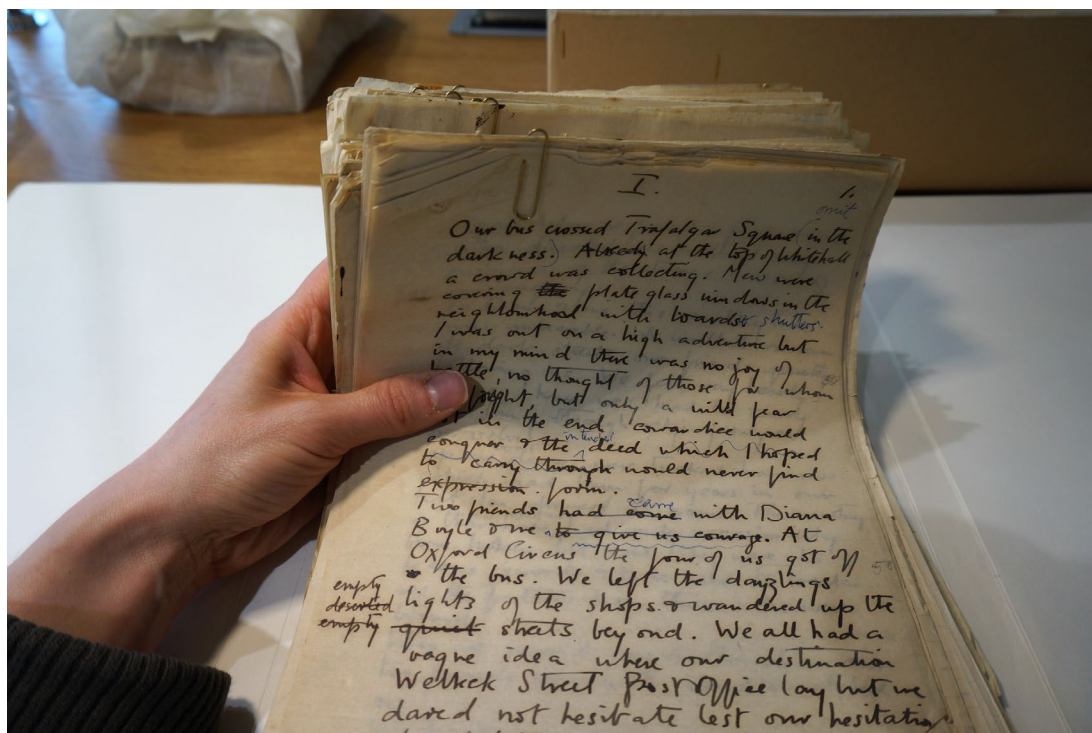 I.
1.
omit
Our bus crossed Trafalgar Square in the
darkness. Already at the top of Whitehall
a crowd was collecting. Men were
covering the plate glass windows in the
neighbourhood with boards & shutters.
I was out on a high adventure but
in my mind there was no joy of
battle, no thought of those for whom
fight, but only a wild fear
in the end cowardice would
conquer & the intended deed which I hoped
to carry through would never find
expression. form.
Two friends had come came with Diana
Boyle & me to give us courage. At
Oxford Circus the four of us got off
the bus. We left the dazzlings
empty
deserted
empty
lights of the shops & wandered up the
quiet streets beyond. We all had a
vague idea where our destination
Welbeck Street Post Office lay but we
dared not hesitate lest our hesitation